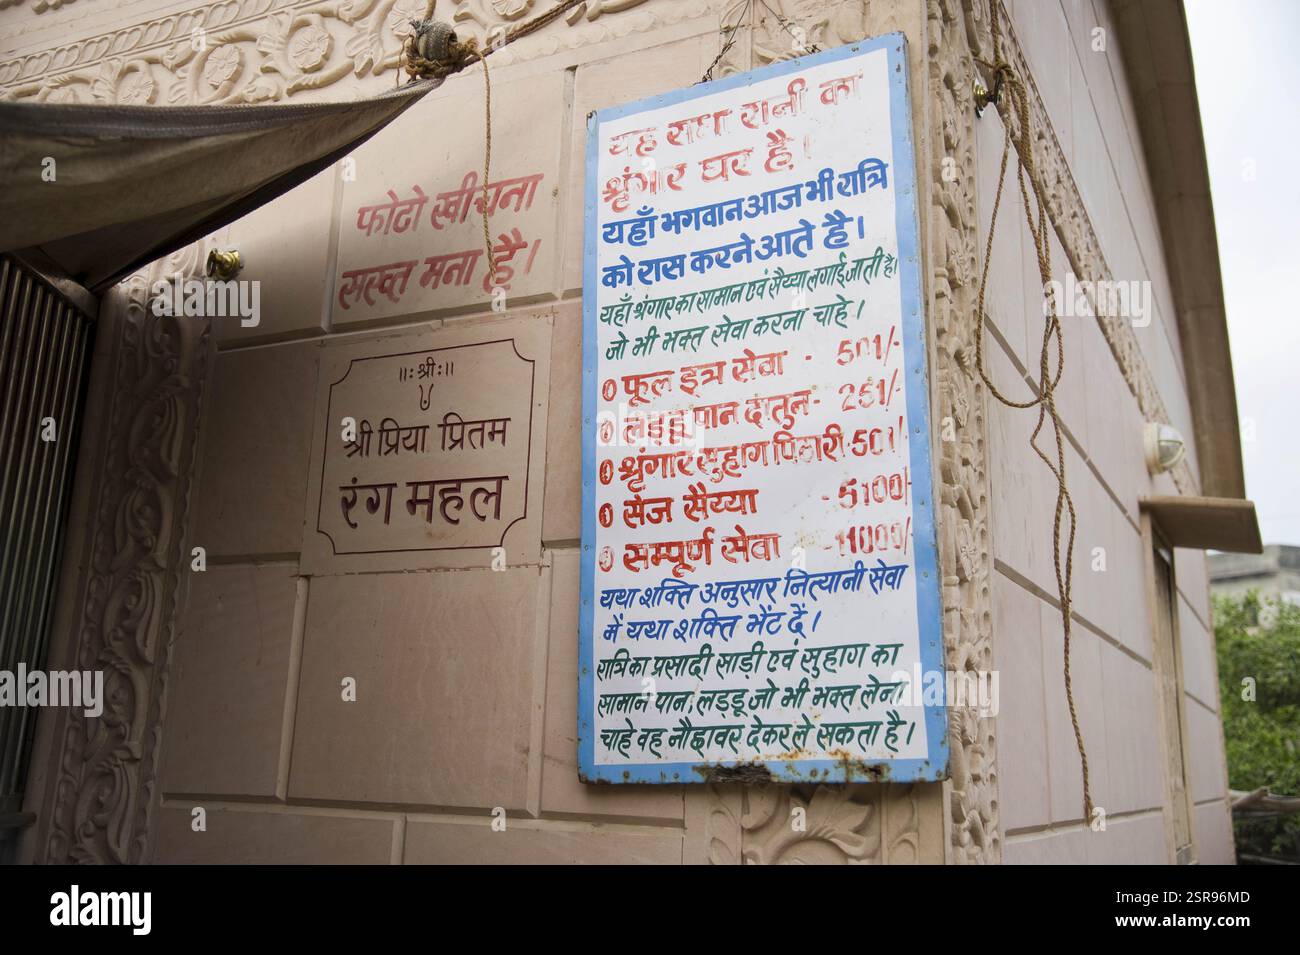 फोटो खींचना
सख्त मना है।
॥ः श्रीः॥
श्री प्रिया प्रितम
रंग महल
यह राधा रानी का
श्रृंगार घर है।
यहाँ भगवान आज भी रात्रि
को रास करने आते है।
यहाँ श्रंगार का सामान एवं सैय्या लगाई जाती है।
जो भी भक्त सेवा करना चाहे।
फूल इत्र सेवा - 501/-
लड्डू पान दातुन - 251/-
श्रृंगार सुहाग पिटारी - 501/-
सेज सैय्या - 5100/-
सम्पूर्ण सेवा - 11000/-
यथा शक्ति अनुसार नित्यानी सेवा
में यथा शक्ति भेंट दें।
रात्रि का प्रसादी साड़ी एवं सुहाग का
सामान पान, लड्डू जो भी भक्त लेना
चाहे वह नौछावर देकर ले सकता है।
alamy
Image ID: 2SR96MD
www.alamy.com